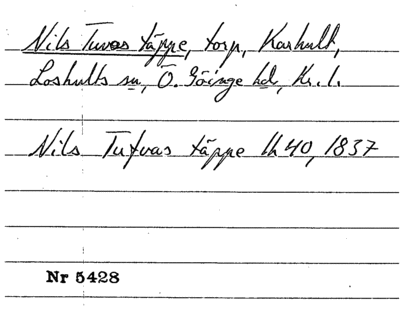 Nils Tuvas täppe, torp, Karhult,
Loshults sn, Ö. Göinge hd, Kr. l.
Nils Tufvas täppe lh 40, 1837
Nr 5428